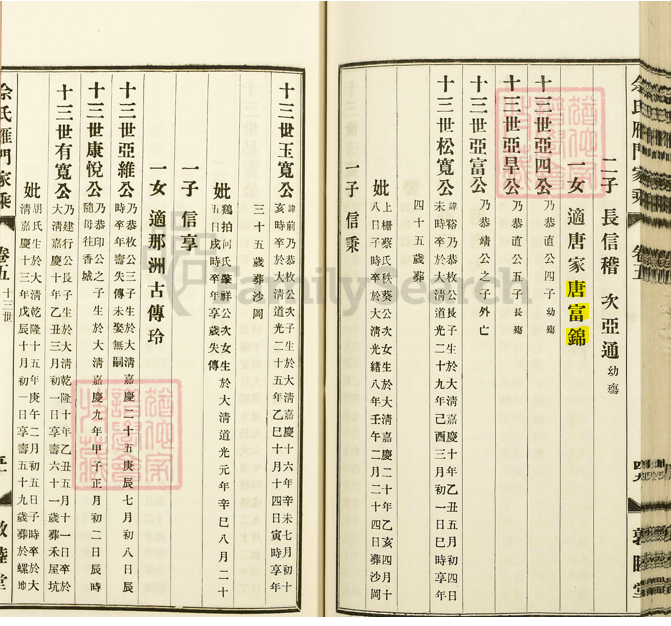 余氏雁門家乘
卷五
四九
敦睦堂
二子 長信稽 次亞通 幼殤
一女 適唐家唐富錦
十三世亞四公 乃恭直公四子幼殤
十三世亞旱公 乃恭直公五子長殤
十三世亞富公 乃恭靖公之子外亡
十三世松寬公 諱谿乃恭枚公長子生於大清嘉慶十年乙丑五月初四日
未時卒於大清道光二十九年己酉三月初一日巳時享年
四十五歲葬
妣 上柵蔡氏秋葵公次女生於大清嘉慶二十年乙亥四月十
八日子時卒於大清光緒八年壬午二月二十四日葬沙岡
一子 信乘
十三世玉寬公 諱前乃恭枚公次子生於大清嘉慶十六年辛未七月初十
亥時卒於大清道光二十五年乙巳十月十四日寅時享年
三十五歲葬沙岡
妣 鷄拍何氏肇祥公次女生於大清道光元年辛巳八月二十
五日戌時卒年享歲失傳
一子 信享
一女 適那洲古傳玲
十三世亞維公 乃恭枚公三子生於大清嘉慶二十五庚辰七月初八日辰
時卒年壽失傳未娶無嗣
十三世康悅公 乃恭印公之子生於大清嘉慶九年甲子正月初二日辰時
隨母往香城
十三世有寬公 乃建行公長子生於大清乾隆十年乙丑五月十一日卒於
大清嘉慶十年乙丑三月初一日享壽六十一歲葬禾屋坑
妣 胡氏生於大清乾隆十五年庚午二月初五日子時卒於大
清嘉慶十三年戊辰十月初一日享壽五十九歲葬於螺地
余氏雁門家乘
卷五 十三世
五十
敦睦堂
FamilySearch